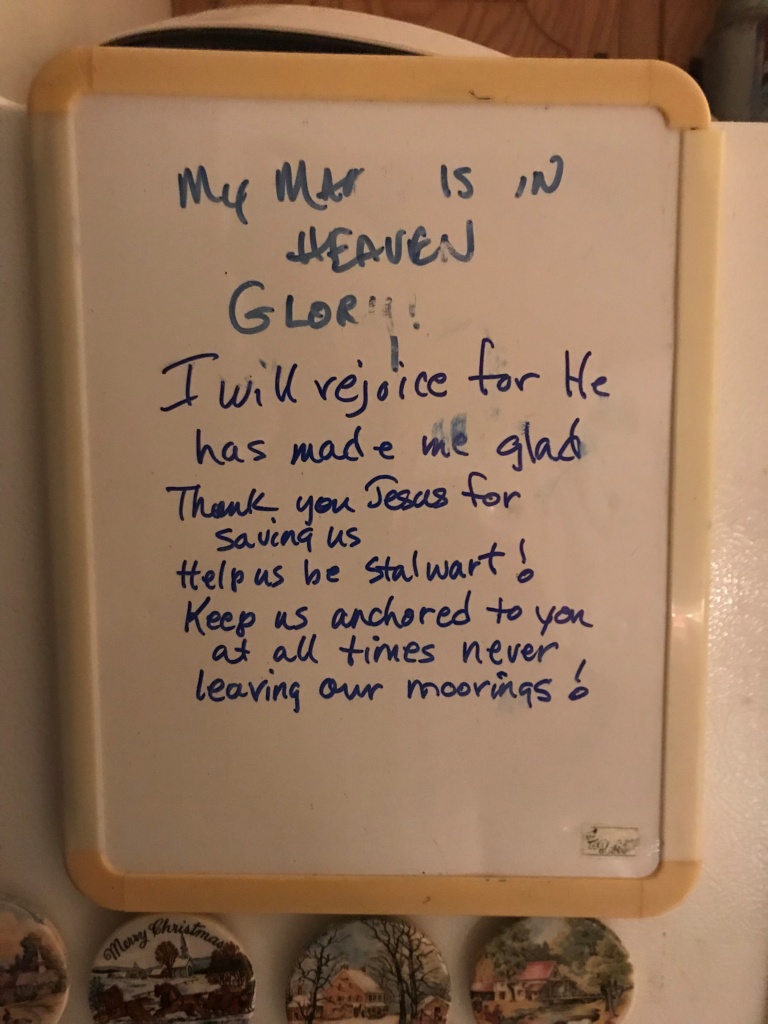 My IS IN
HEAVEN
GLORY!
I will rejoice for He
has made me glad
Thank you Jesus for
saving us
Help us be stalwart!
Keep us anchored to you
at all times never
leaving our moorings!
Merry Christmas